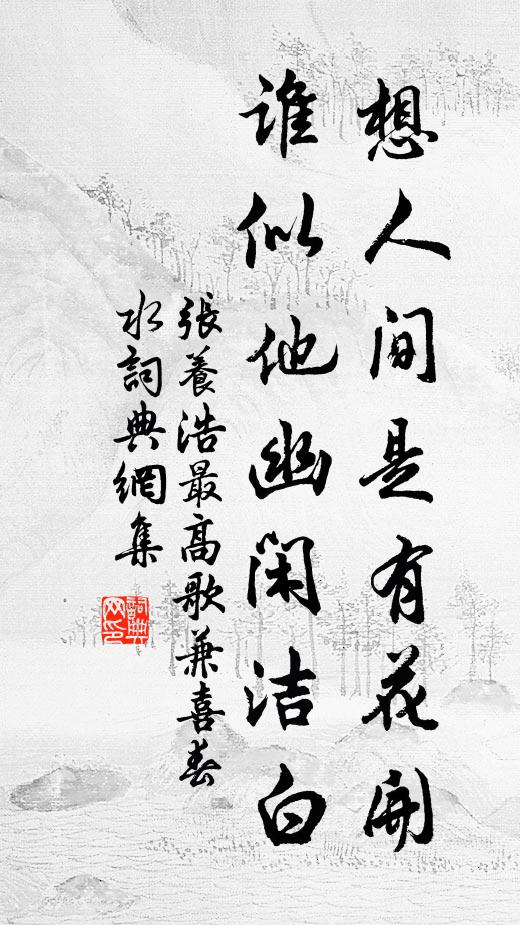 想人间是有花開
谁似他幽闲洁白
張養浩最高歌兼喜春
水詞典網集
詞典网印